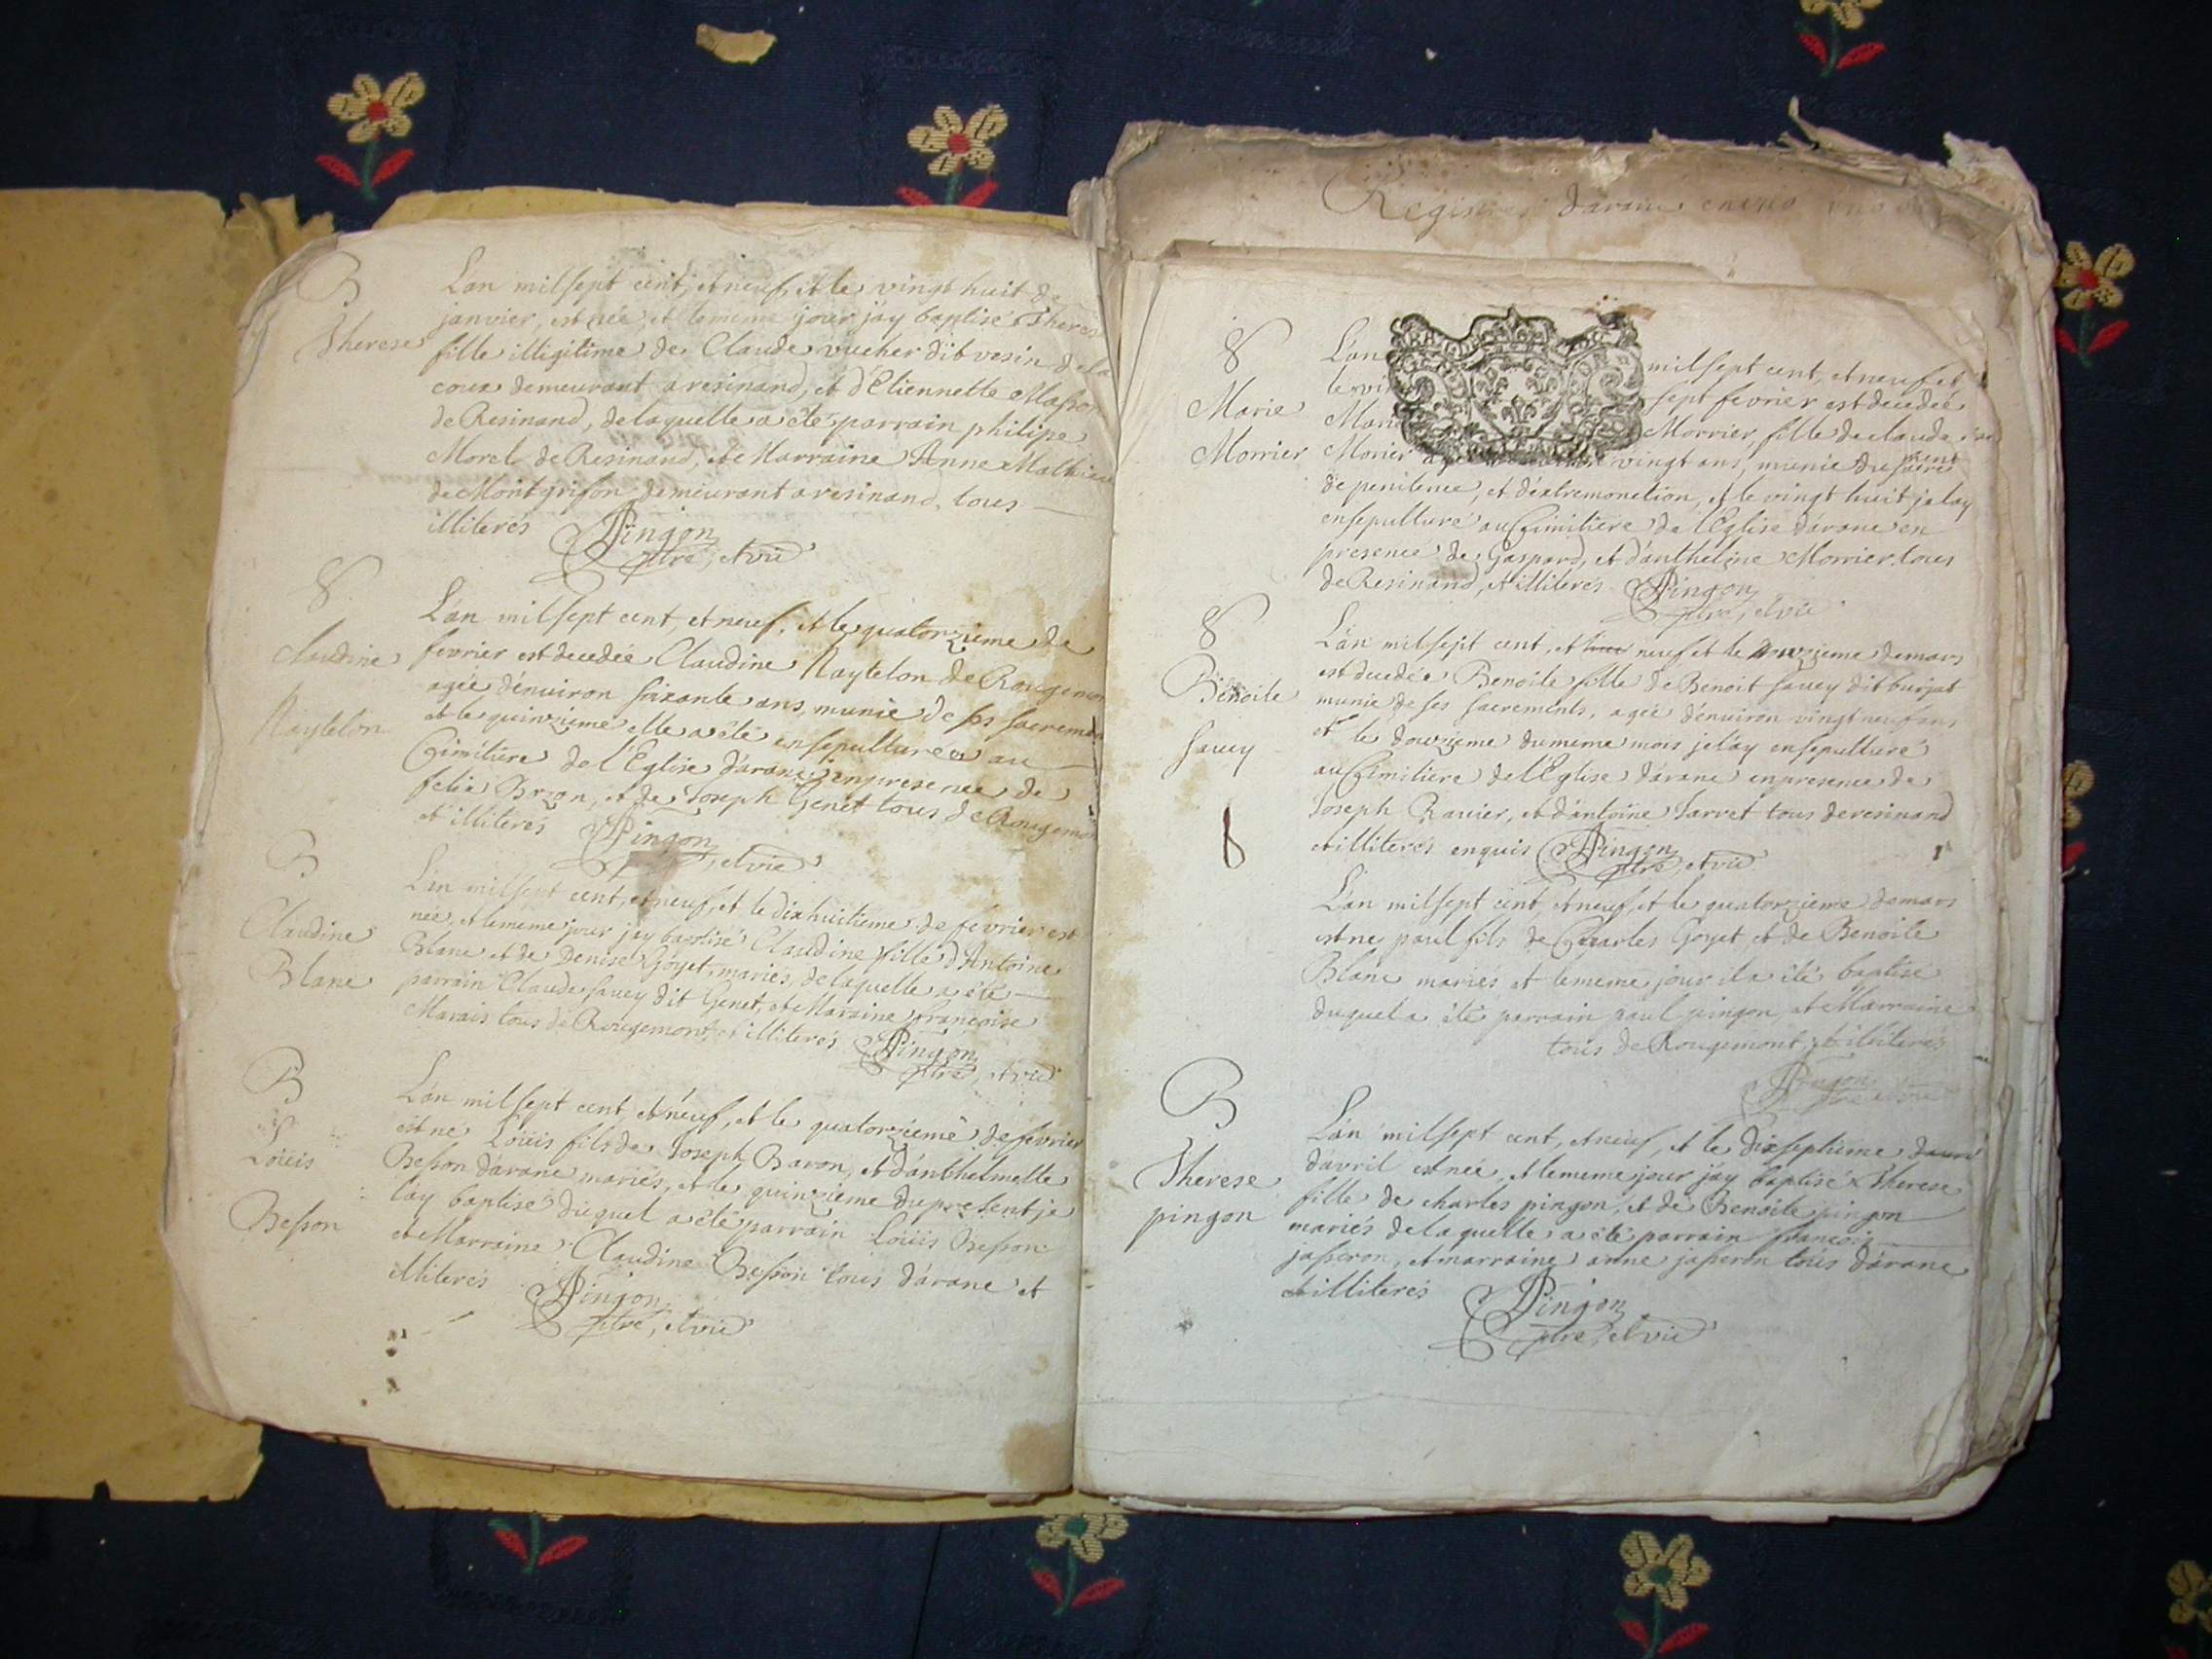 B
Therese
L'an mil sept cent, et neuf, et le vingt huit de
janvier, est née et le meme jour j'ay baptisé Therese
fille illigitime de Claude vucher dit vesin de la
coux demeurant a resinand, et d'Etiennette Masson
de Resinand, de laquelle a été parrain philipe
Morel de Resinand, et Marraine Anne Mathieu
de Montgrifon demeurant a resinand, tous
illiterés Pingon
ptre, et vic
S
Claudine
Naytelon
L'an mil sept cent, et neuf, et le quatorzieme de
fevrier est decedée Claudine Naytelon de Rougemon
agée d'environ soixante ans, munie de ses sacrem
et le quinzieme elle a été ensepulturée au
Cimitiere de l'Eglise d'arane en presence de
felix Brzon, et de Joseph Genet tous de Rougemon
et illiterés Pingon
ptre, et vic
B
Claudine
Blanc
L'an mil sept cent, et neuf, et le dixhuitieme de fevrier est
née, et le meme jour jay baptisé Claudine fille d'Antoine
Blanc et de Denise Goyet, mariés, de laquelle a été
parrain Claude savey dit Genet, et Maraine françoise
Marais tous de Rougemont, et illiterés Pingon
ptre, et vic
B
Loüis
Besson
L'an mil sept cent, et neuf, et le quatorzieme de fevrier
est né Loüis fils de Joseph Baron, et d'anthelmette
Besson d'arane mariés, et le quinzieme du present je
l'ay baptisé duquel a été parrain Loüis Besson
et Marraine Claudine Besson tous d'arane et
illiterés Pingon
ptre, et vic
Registre d'arane
S
Marie
Morrier
L'an mil sept cent, et neuf et
le vi sept fevrier est decedée
Marie Morrier, fille de claude
Morier vingt ans, munie du sacrement
de penitence, et d'extremonction, et le vingt huit je lay
ensepulturé au Cimitiere de l'Eglise d'arane en
presence de Gaspard, et d'anthelme Morrier tous
de Resinand, et illiterés Pingon
ptre, et vic
S
Benoite
savey
L'an mil sept cent, et neuf et le onzieme de mars
est decedée Benoite fille de Benoit savey dit burjat
munie de ses sacrements, agée d'environ vingt neuf ans
et le douzieme du meme mois je l'ay ensepulturé
au Cimitiere de l'Eglise d'arane en presence de
Joseph Ravier, et d'antoine Jarvet tous de resinand
et illiterés enquis Pingon
ptre, et vic
L'an mil sept cent, et neuf, et le quatorzieme de mars
est né paul fils de Charles Goyet et de Benoite
Blanc mariés et le meme jour il a été baptisé
duquel a été parrain paul pingon et Marraine
tous de Rougemont, et illiterés
Pingon
ptre et vic
B
Therese
pingon
L'an mil sept cent, et neuf, et le dixseptieme
d'avril est née, et le meme jour j'ay baptisé Therese
fille de charles pingon, et de Benoite pingon
mariés de laquelle a été parrain françois
jasseron, et marraine anne jasseron tous d'arane
et illiterés Pingon
ptre, et vic